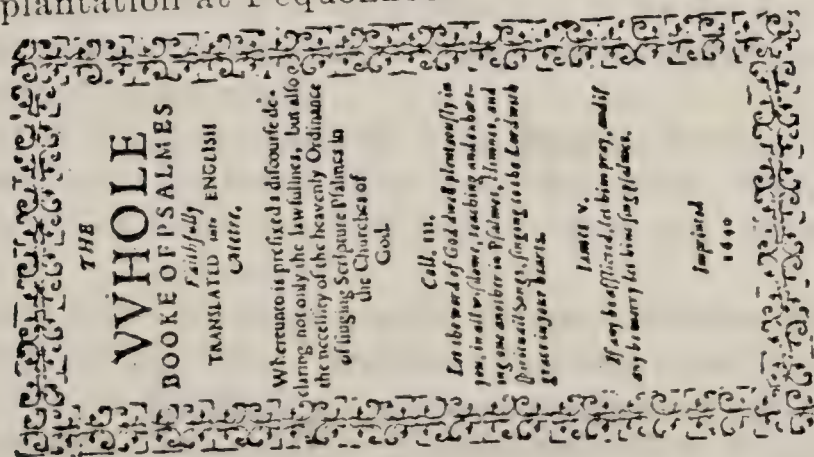 plantation at Pequonnoc
THE
VVHOLE
BOOKE OF PSALMES
Faithfully
TRANSLATED into ENGLISH
Metre.
Whereunto is prefixed a discourse de-
claring not only the lawfullnes, but also
the necessity of the heavenly Ordinance
of singing Scripture Psalmes in
the Churches of
God.
Coll. III.
Let the word of God dwell plenteously in
you, in all wisdome, teaching and exhort-
ing one another in Psalmes, Himnes, and
spirituall Songs, singing to the Lord with
grace in your hearts.
Iames V.
If any be afflicted, let him pray, and if
any be merry let him sing psalmes.
Imprinted
1640